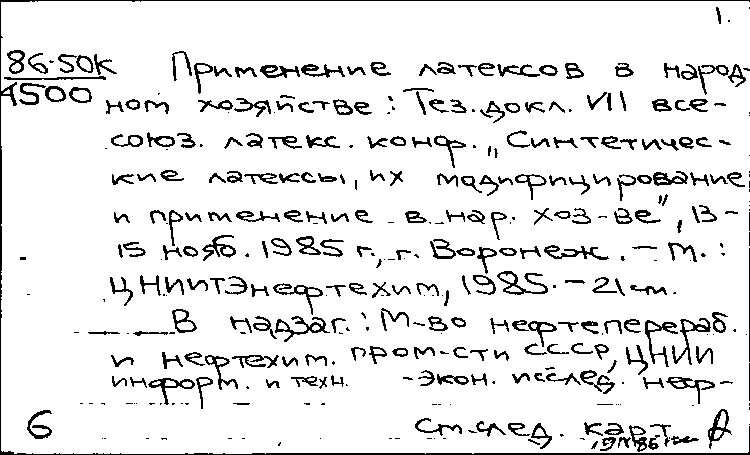 1.
86-50К Применение латексов в народ-
4500 ном хозяйстве : Тез. докл. VII все-
союз. латекс. конф. „Синтетичес-
кие латексы, их модифицирование
и применение в нар. хоз-ве", 13-
15 нояб. 1985 г., г. Воронеж. – М. :
ЦНИИТЭнефтехим, 1985. – 21 см.
В надзаг. : М-во нефтеперераб.
и нефтехим. пром-сти СССР, ЦНИИ
информ. и техн. -экон. исслед. неф-
6 См. след. карт.